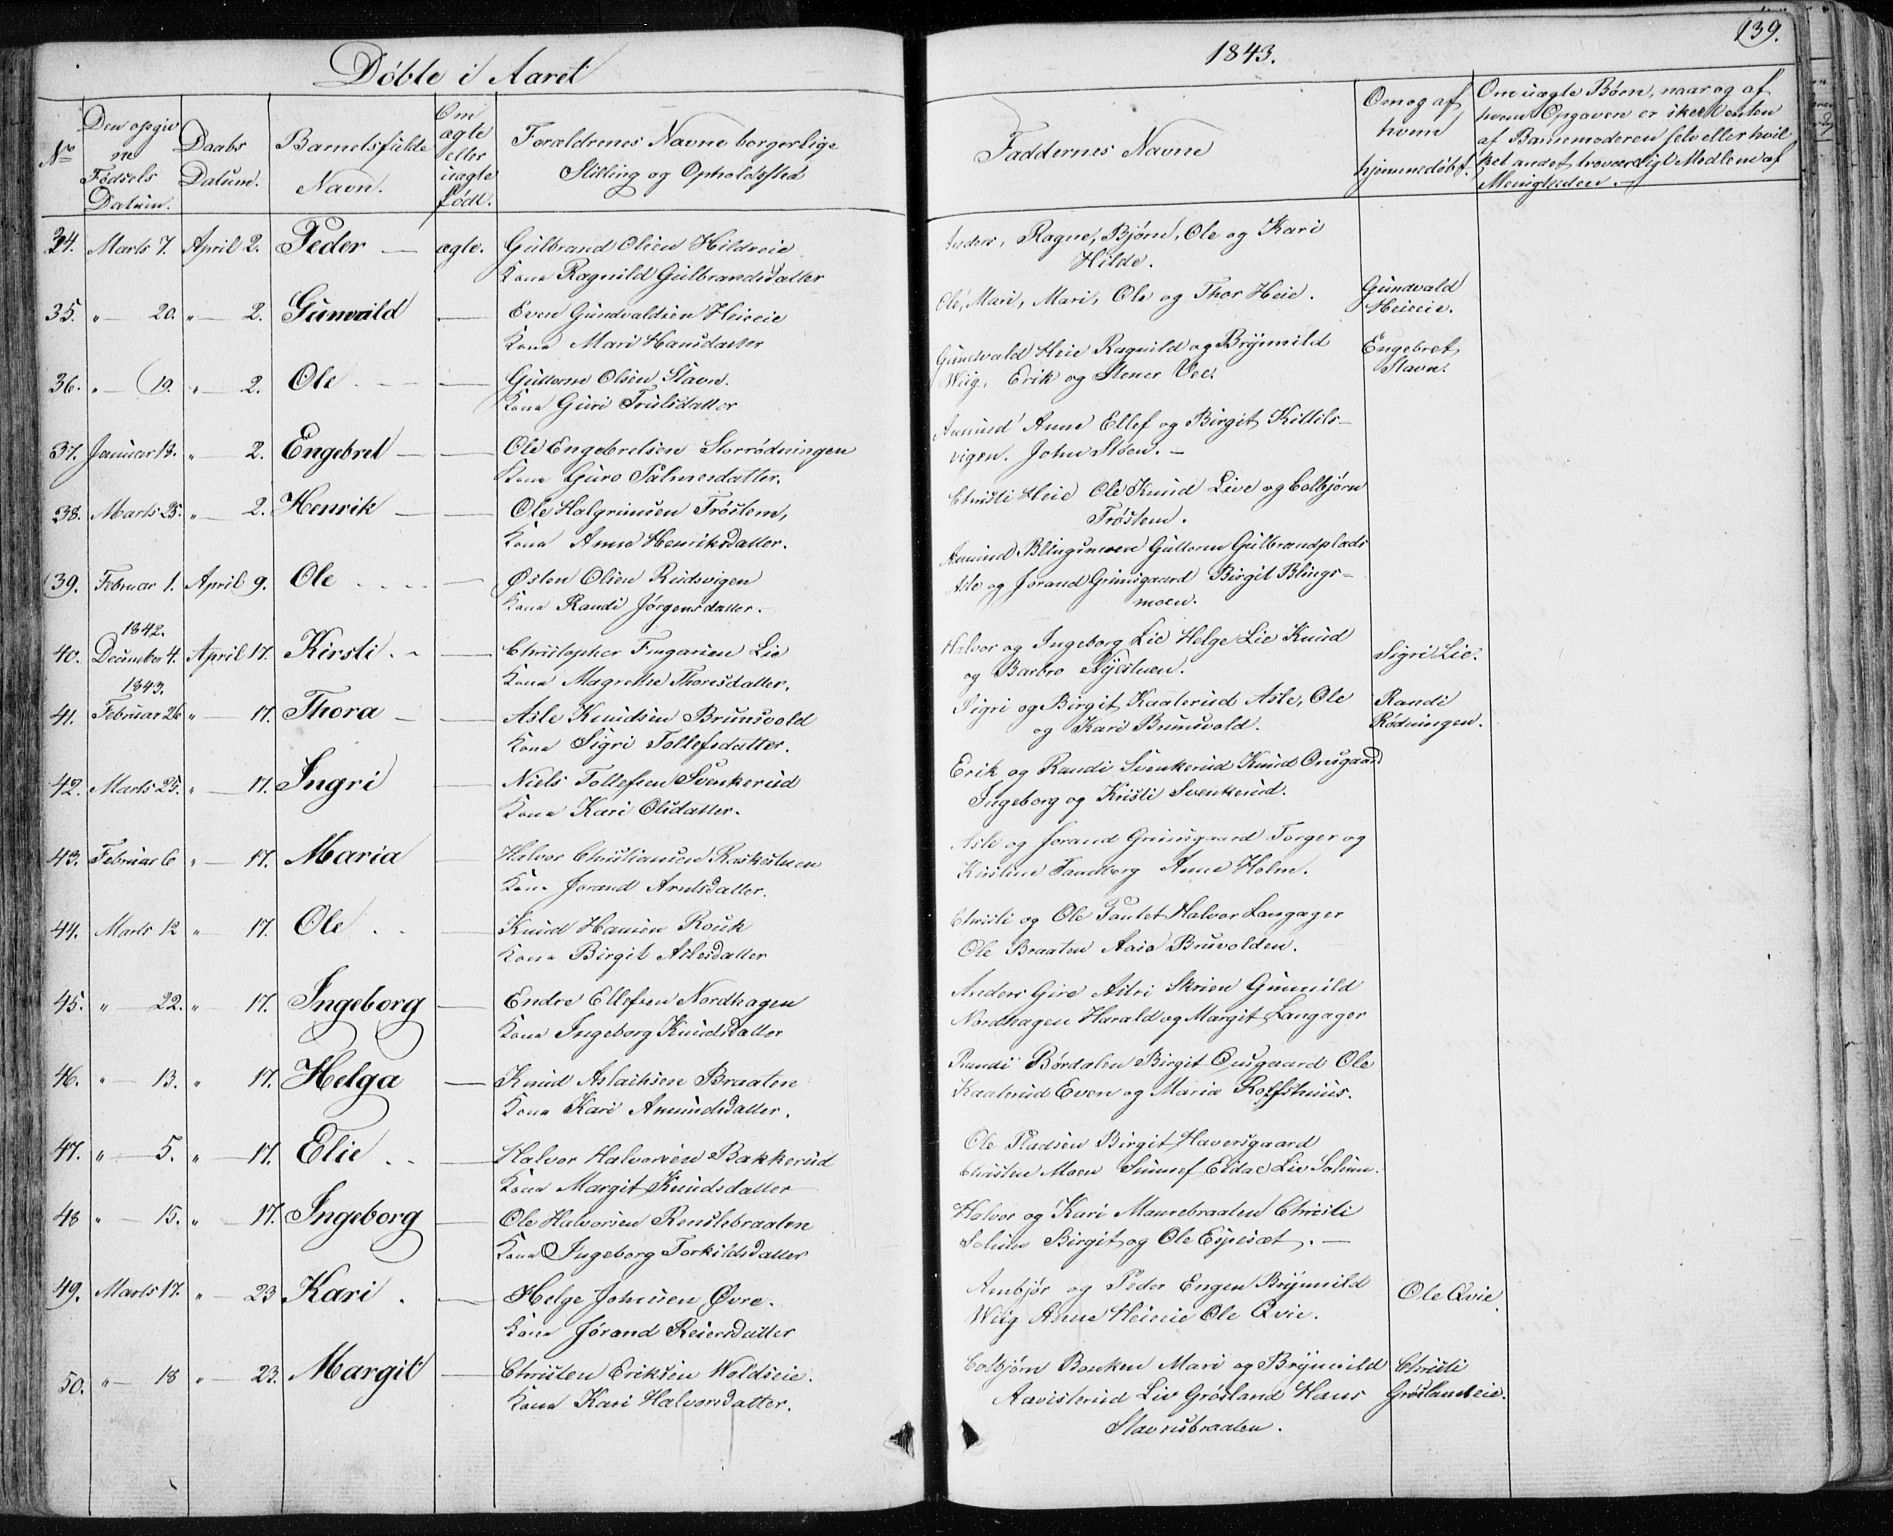 Døbte i Aaret
1843.
139.
No
Den opgivne Fødsels Datum.
Daabs Datum.
Barnets fulde Navn.
Om ægte eller uægte født.
Forældrenes Navne borgerlige Stilling og Opholdssted
Faddernes Navne
Om og af hvem hjemmedøbt.
Om uægte Børn, naar og af hvem Opgaven er skeet enten af Barnemoderen selv eller hvilket andet troværdigt Medlem af Menigheden.
34. Marts 7. April 2. Peder — ægte. Gulbrand Olsen Hildeeie
Kone Ragnild Gulbrandsdatter
Anders, Ragne, Bjørn, Ole og Kari
Hilde.
35. " — 20. " — 2. Gunvald — Even Gundvaldsen Heieeie
Kone Mari Hansdatter
Ole, Mari, Mari, Ole og Thor Heie.
Gundvald
Heieeie.
36. " — 19. " — 2. Ole — Guttorm Olsen Stavn.
Kone Guri Trulsdatter
Gundvald Heie Ragnild og Brynnild
Wiig, Erik og Stener Vee.
Engebret
Stavn.
37. Januar 13. " — 2. Engebret — Ole Engebretsen Storrødningen
Kone Guro Palmesdatter.
Amund Anne Ellef og Birgit Kittils-
vigen. John Støen. —
38. Marts 25. " — 2. Henrik — Ole Halgrimsen Trøstem,
Kone Anne Henriksdatter.
Christi Heie Ole Knud Live og Colbjørn
Trøstem.
39. Februar 1. April 9. Ole — Østen Olsen Rudsvigen
Kone Randi Jørgensdatter.
Amund Blingsmoen Guttorm Gulbrandsplads
Asle og Jorand Grimsgaard Birgit Blings-
moen.
1842.
40. December 4. April 17. Kirsti — Christopher Fingarsen Lie
Kone Magrethe Thoresdatter.
Halvor og Ingeborg Lie Helge Lie Knud
og Barbro Nyestuen.
Sigri Lie.
1843.
41. Februar 26 " — 17. Thora — Asle Knudsen Brunsvold
Kone Sigri Tollefsdatter.
Sigri og Birgit Kaalerud Asle, Ole
og Kari Brunsvold.
Randi
Rødningen.
42. Marts 25. " — 17. Ingri — Niels Tollefsen Svenkerud
Kone Kari Olsdatter.
Erik og Randi Svenkerud Knud Onsgaard
Ingeborg og Kristi Svenkerud.
43. Februar 6 " — 17. Maria — Halvor Christiansen Kaskestuen
Kone Jorand Arnesdatter.
Asle og Jorand Grimsgaard Torger og
Kirstine Sandborg Anne Holm.
44. Marts 12 " — 17. Ole — Knud Hansen Rouk
Kone Birgit Aslesdatter
Christi og Ole Halvor Langager
Ole Braaten Aase Bruvolden.
45. " — 22. " — 17. Ingeborg — Endre Ellefsen Nordhagen
Kone Ingeborg Knudsdatter
Anders Gire Astri Skrien Gunnild
Nordhagen Harald og Margit Langager
46. " — 13. " 17. Helga — Knud Aslaksen Braaten
Kone Kari Amundsdatter.
Randi Børdalen Birgit Onsgaard Ole
Kaalerud Even og Maria Rolfshuus.
47. " — 5. " — 17. Elie — Halvor Halvorsen Bakkerud
Kone Margit Knudsdatter
Ole Pladsen Birgit Haversgaard
Christen Moen Sunnef Eidal Liv Solum.
48 " — 15. " — 17. Ingeborg — Ole Halvorsen Renslebraaten
Kone Ingeborg Torkildsdatter
Halvor og Kari Maurebraaten Christi
Solum Birgit og Ole Espeset. —
49. Marts 17. " — 23 Kari — Helge Johnsen Øvre.
Kone Jørand Reiersdatter
Arnbjør og Peder Engen Brynnild
Wiig Anne Heieeie Ole Qvie.
Ole Qvie.
50. " — 18 " — 23. Margit — Christen Eriksen Woldseie.
Kone Kari Halvorsdatter.
Colbjørn Bonken Mari og Brynnild
Aavisterud Liv Grøsland Hans
Stavnsbraaten.
Christi
Grøslandeie.